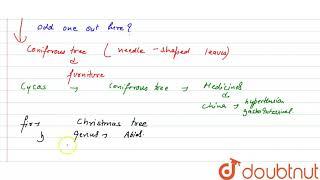 odd one out here?
Coniferous tree ( needle-shaped leaves)
↓
furniture
Cycas → coniferous tree → Medicines
↓
China → hypertension
gastrointestinal
fir → Christmas tree
↳ genus → Abies.
doubtnut